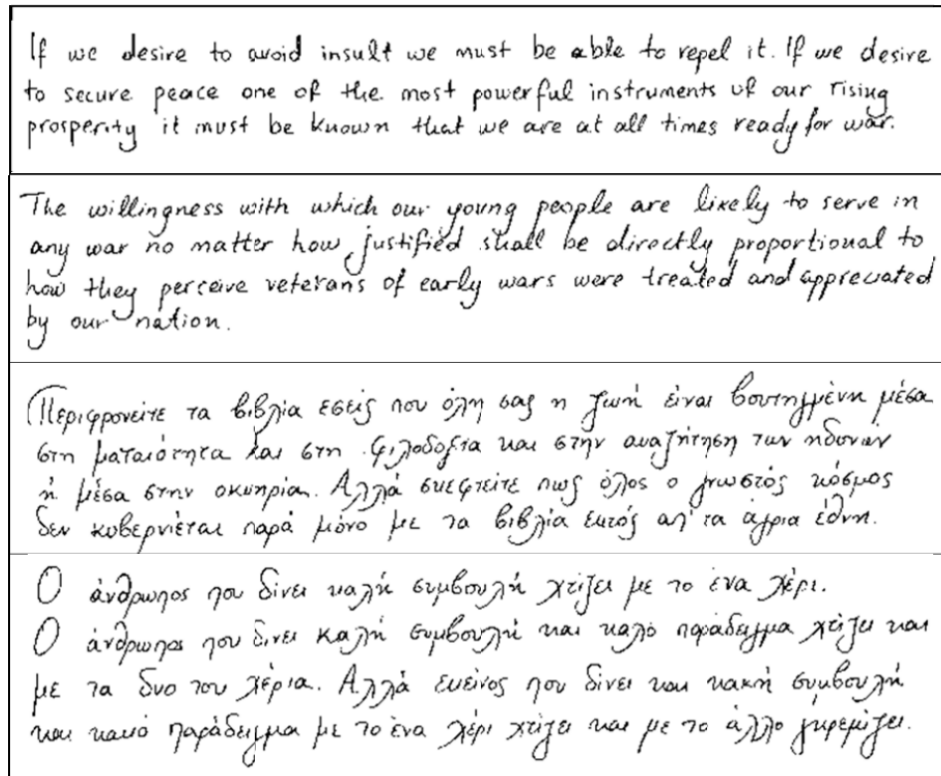 If we desire to avoid insult we must be able to repel it. If we desire
to secure peace one of the most powerful instruments of our rising
prosperity it must be known that we are at all times ready for war.
The willingness with which our young people are likely to serve in
any war no matter how justified shall be directly proportional to
how they perceive veterans of early wars were treated and appreciated
by our nation.
Περιφρονείτε τα βιβλία εσείς που όλη σας η ζωή είναι βουτηγμένη μέσα
στη ματαιότητα και στη φιλοδοξία και στην αναζήτηση των ηδονών
ή μέσα στην οκνηρία. Αλλά σκεφτείτε πως όλος ο γνωστός κόσμος
δεν κυβερνιέται παρά μόνο με τα βιβλία εκτός απ' τα άγρια έθνη.
Ο άνθρωπος που δίνει καλή συμβουλή χτίζει με το ένα χέρι.
Ο άνθρωπος που δινει καλή συμβουλή και καλό παράδειγμα χτίζει και
με τα δυο του χέρια. Αλλά εκείνος που δίνει και κακή συμβουλή
και κακό παράδειγμα με το ένα χέρι χτίζει και με το άλλο γκρεμίζει.